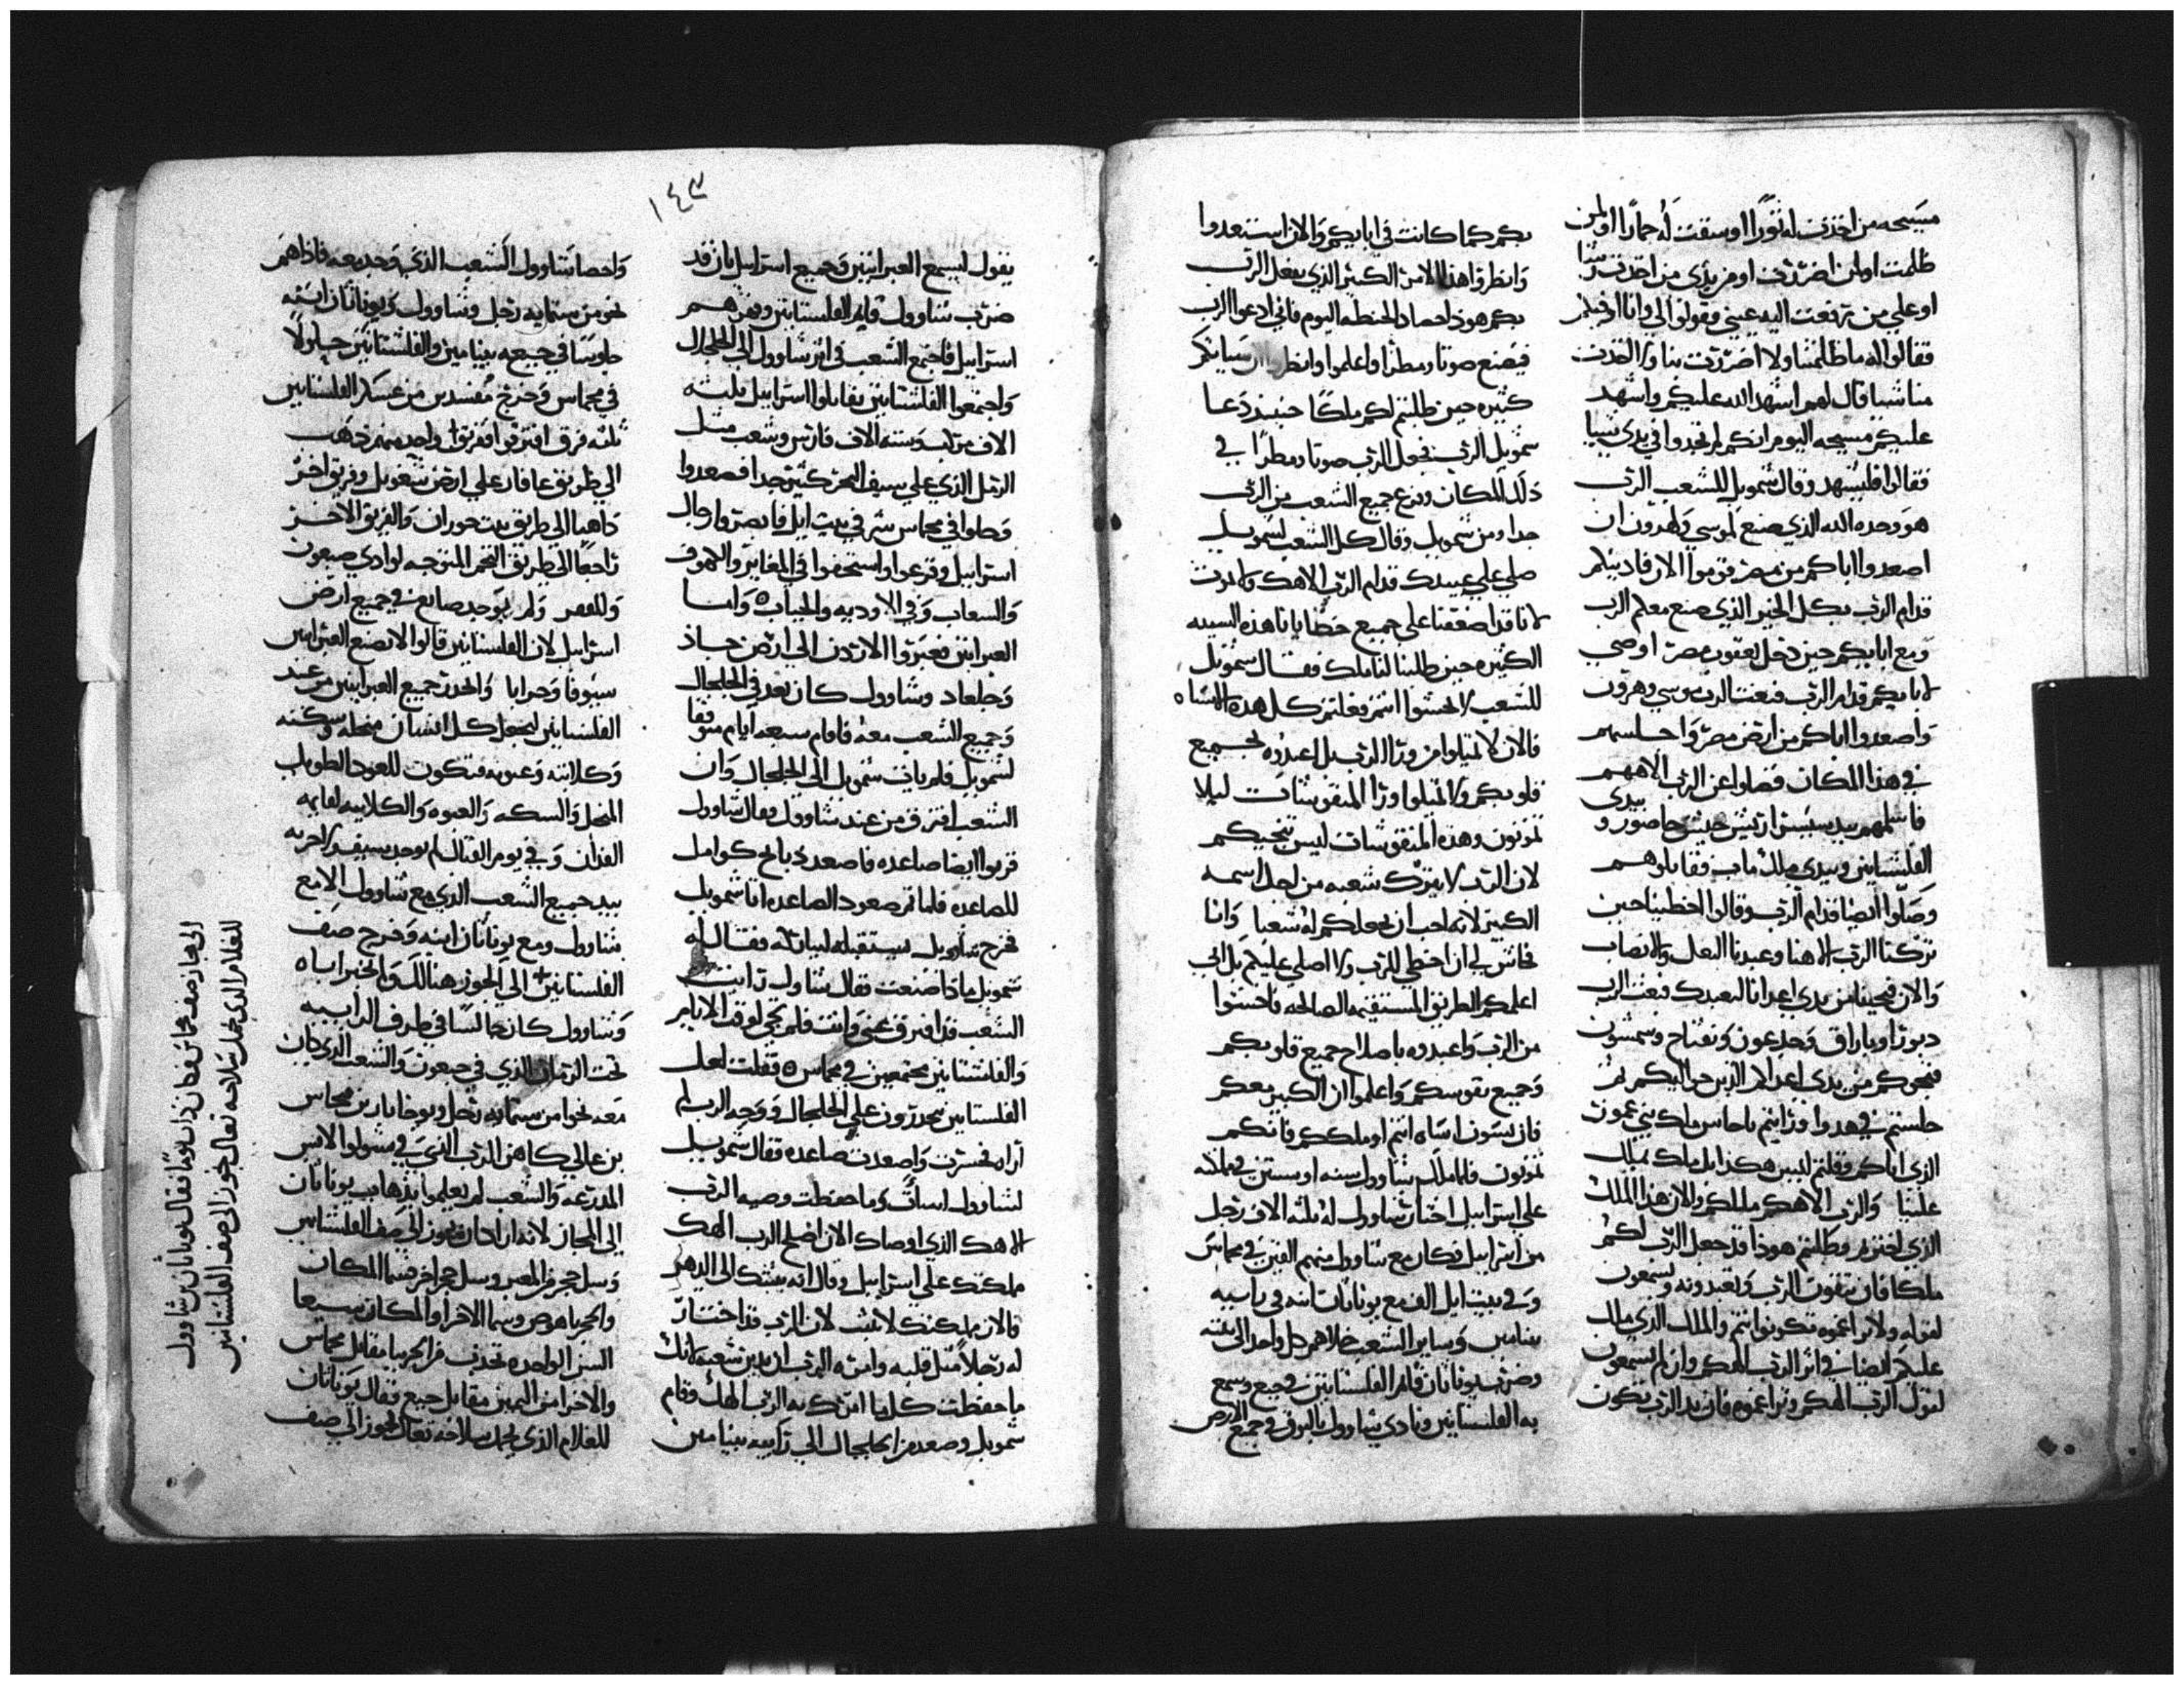 مسيحه من اخذت له ثورًا او سقت له حمارًا او لمن
ظلمت او لمن اضررت او من يدي من اخذت رشا
او علي من رفعت اليه عيني وقولوا لي وانا
فقالوا له ما ظلمتنا ولا اضررت بنا ولا اخذت
منا شيا قال لهم اشهد الله عليكم واشهد
عليكم مسيحه اليوم انكم لم تجدوا في يدي شيا
فقالوا فليشهد وقال شمويل للشعب الرب
هو وحده الله الذي صنع لموسي ولهرون ان
اصعدوا اباكم من مصر قوموا الان
قدام الرب بكل الخير الذي صنع معكم الرب
ومع ابايكم حين دخل يعقوب مصر
لابايكم قدام الرب فبعث الرب موسي وهرون
واصعدوا اباكم من ارض مصر واجلسهم
في هذا المكان فضلوا عن الرب الاههم
فاسلمهم بيد سيسرا ريس جيش حاصور و بيدي
الفلسنانين وبيدي ملك ماب فقابلوهم
وصلوا ايضا قدام الرب وقالوا اخطينا حين
تركنا الرب الاهنا وعبدنا البعل والانصاب
والان نجينا من يدي اعدانا لنعبدك فبعث الرب
دبورا وباراق وجدعون ونفتاح وسمسون
فنجوكم من يدي اعداكم الذين حواليكم ثم
جلستم في هدوا ورايتم ناحاس ملك بني عمون
الذي اتاكم وقلتم ليس هكذا بل ملك يملك
علينا والرب الاهكم ملك والان هذا الملك
الذي اخترتم وطلبتم هوذا قد جعل الرب لكم
ملكا فان تتقون الرب وتعبدونه وتسمعون
لقوله ولا تراغموه تكونوا انتم والملك الذي ملك
عليكم ايضا في اثر الرب الهكم وان لم تسمعون
لقول الرب الهكم وتراغموه فان يد الرب تكون
بكم كما كانت في ابايكم والان استعدوا
وانظروا هذا الامر الكبير الذي يفعل الرب
بكم هوذا حصاد الحنطه اليوم فاني ادعوا الرب
فيصنع صوتا ومطرًا واعلموا وانظروا ان سياتكم
كثيره حين طلبتم لكم ملكًا حينيذ دعا
شمويل الرب فجعل الرب صوتا ومطرًا في
ذلك المكان وفزع جميع الشعب من الرب
جدا ومن شمويل وقال كل الشعب لشمويل
صلي علي عبيدك قدام الرب الاهك ولا نموت
لانا قد اضعفنا علي جميع خطايانا هذه السيه
الكثيره حين طلبنا لنا ملك فقال شمويل
للشعب لا تخشوا انتم فعلتم كل هذه السياه
فالان لا تميلوا من ورا الرب بل اعبدوه بجميع
قلوبكم ولا تميلوا ورا المنقوشات ليلا
تموتون وهذه المنقوشات ليس تنجيكم
لان الرب لا يترك شعبه من اجل اسمه
الكبير لانه احب ان يجعلكم له شعبا وانا
فحاش لي ان اخطي للرب ولا اصلي عليكم بل اني
اعلمكم الطريق المستقيمه الصالحه فاخشوا
من الرب واعبدوه باصلاح جميع قلوبكم
وجميع نفوسكم واعلموا ان الكبير معكم
فان تسون اساه انتم او ملككم فانكم
تموتون فلما ملك شاوول سنه او سنتين في مملكته
علي اسراييل اختار شاوول له ثلثه الاف رجل
من اسراييل فكان مع شاوول منهم الفين في مخماس
وفي بيت ايل الف مع يوناثان ابنه في رابيه
بنيامين وساير الشعب خلاهم كل واحد الي بيته
وضرب يوناثان قايم الفلسنانين في جبع وسمع
به الفلسنانين ونادي شاوول بالبوق في جميع الارض
١٤٣
يقول ليسمع العبرانيين وجميع اسراييل بان قد
ضرب شاوول قايم الفلسنانين ووهن هم
اسراييل فاجتمع الشعب في اثر شاوول الي الجلجال
واجتمعوا الفلسنانين يقابلوا اسراييل ثلثه
الاف مركب وسته الاف فارس وشعب مثل
الرمل الذي علي سيف البحر كثير جدا فصعدوا
وحلوا في مخماس شرقي بيت ايل فابصروا رجال
اسراييل وفزعوا واستخفوا في المغاير والكهوف
والشعاب وفي الاوديه والجباب واما
العبرانين فعبروا الاردن الي ارض جاد
وجلعاد وشاوول كان بعد في الجلجال
وجميع الشعب معه فاقام سبعه ايام متوقفا
لشمويل فلم يات شمويل الي الجلجال وان
الشعب افترق من عند شاوول فقال شاوول
قربوا ايضا صاعده فاصعد ذبايح كوامل
للصاعده فلما تم صعود الصاعده اتا شمويل
فخرج شاوول يستقبله لبياركه فقال له
شمويل ماذا صنعت فقال شاوول رايت
الشعب قد افترق عني وانت فلم تجي لوقت الايام
والفلسنانين مجتمعين في مخماس فقلت لعل
الفلسنانين ينحدرون علي الجلجال ووجه الرب لم
اراه فجسرت واصعدت صاعده فقال شمويل
لشاوول اسات وما حفظت وصيه الرب
الاهك الذي اوصاك الان اصلح الرب الهك
ملكك علي اسراييل وقال انه يثبتك الي الدهر
فالان مملكتك لا تثبت لان الرب قد اختار
له رجلًا مثل قلبه وامره الرب ان يدبر شعبه لانك
ما حفظت كلما امرك به الرب الهك وقام
شمويل وصعد من الجلجال الي رابيه بنيامين
واحصا شاوول الشعب الذي وجد معه فاذا هم
نحو من ستمايه رجل وشاوول ويوناثان ابنه
جلوسًا في جبعه بنيامين والفلسنانين حلولًا
في مخماس وخرج مفسدين من عسكر الفلسنانين
ثلثه فرق افترقوا فرقتًا واحده منهم ذهب
الي طريق عافار علي ارض شغويل وفريق اخر
ذاهبًا الي طريق بيت حوران والفريق الاخر
راجعًا الي طريق التخم المتوجه لوادي صبعون
وللقفر ولم يوجد صايغ في جميع ارض
اسراييل لان الفلسنانين قالوا لا تصنع العبرانين
سيوفا وحرابا وانحدر جميع العبرانيين من عند
الفلسنانين ليجعل كل انسان منجله وسكته
وكلابته وعتوته فتكون للعود الطويله
المنجل والسكه والعتوه والكلابيه لقايمه
الفدان وفي يوم القتال لم يوجد سيف ولا حربه
بيد جميع الشعب الذي مع شاوول الا مع
شاوول ومع يوناثان ابنه وخرج صف
الفلسنانين الي الجوز هنالك ولم يخبر اباه
وشاوول كان جالسًا في طرف الرابيه
تحت الرمان الذي في جبعون والشعب الذي كان
معه نحوا من ستمايه رجل ويوخابار بن مخماس
بن عالي كاهن الرب الذي في سيلوا لابس
المدرعه والشعب لم يعلموا بذهاب يوناثان
الي المجاز لانه اراد ان يجوز الي صف الفلسنانين
وسل حجر في المعبر وسل حجر اخر فسما المكان
السن الواحده تحدف من الجربيا مقابل مخماس
والاخرا من اليمين مقابل جبع فقال يوناثان
للغلام الذي يحمل سلاحه تعال نجوز الي صف
الي مجاز صف مخماس فكان ذات يومًا فقال يوناثان بن شاوول
للغلام الذي يحمل سلاحه تعال نجوز الي صف الفلسنانين